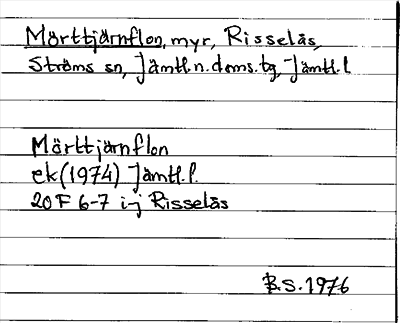 Mörttjärnflon, myr, Risselås,
Ströms sn, Jämtl.n.doms.tg, Jämtl.l
Mörttjärnflon
ek(1974) Jämtl.l.
20F 6-7 i-j Risselås
B.S. 1976